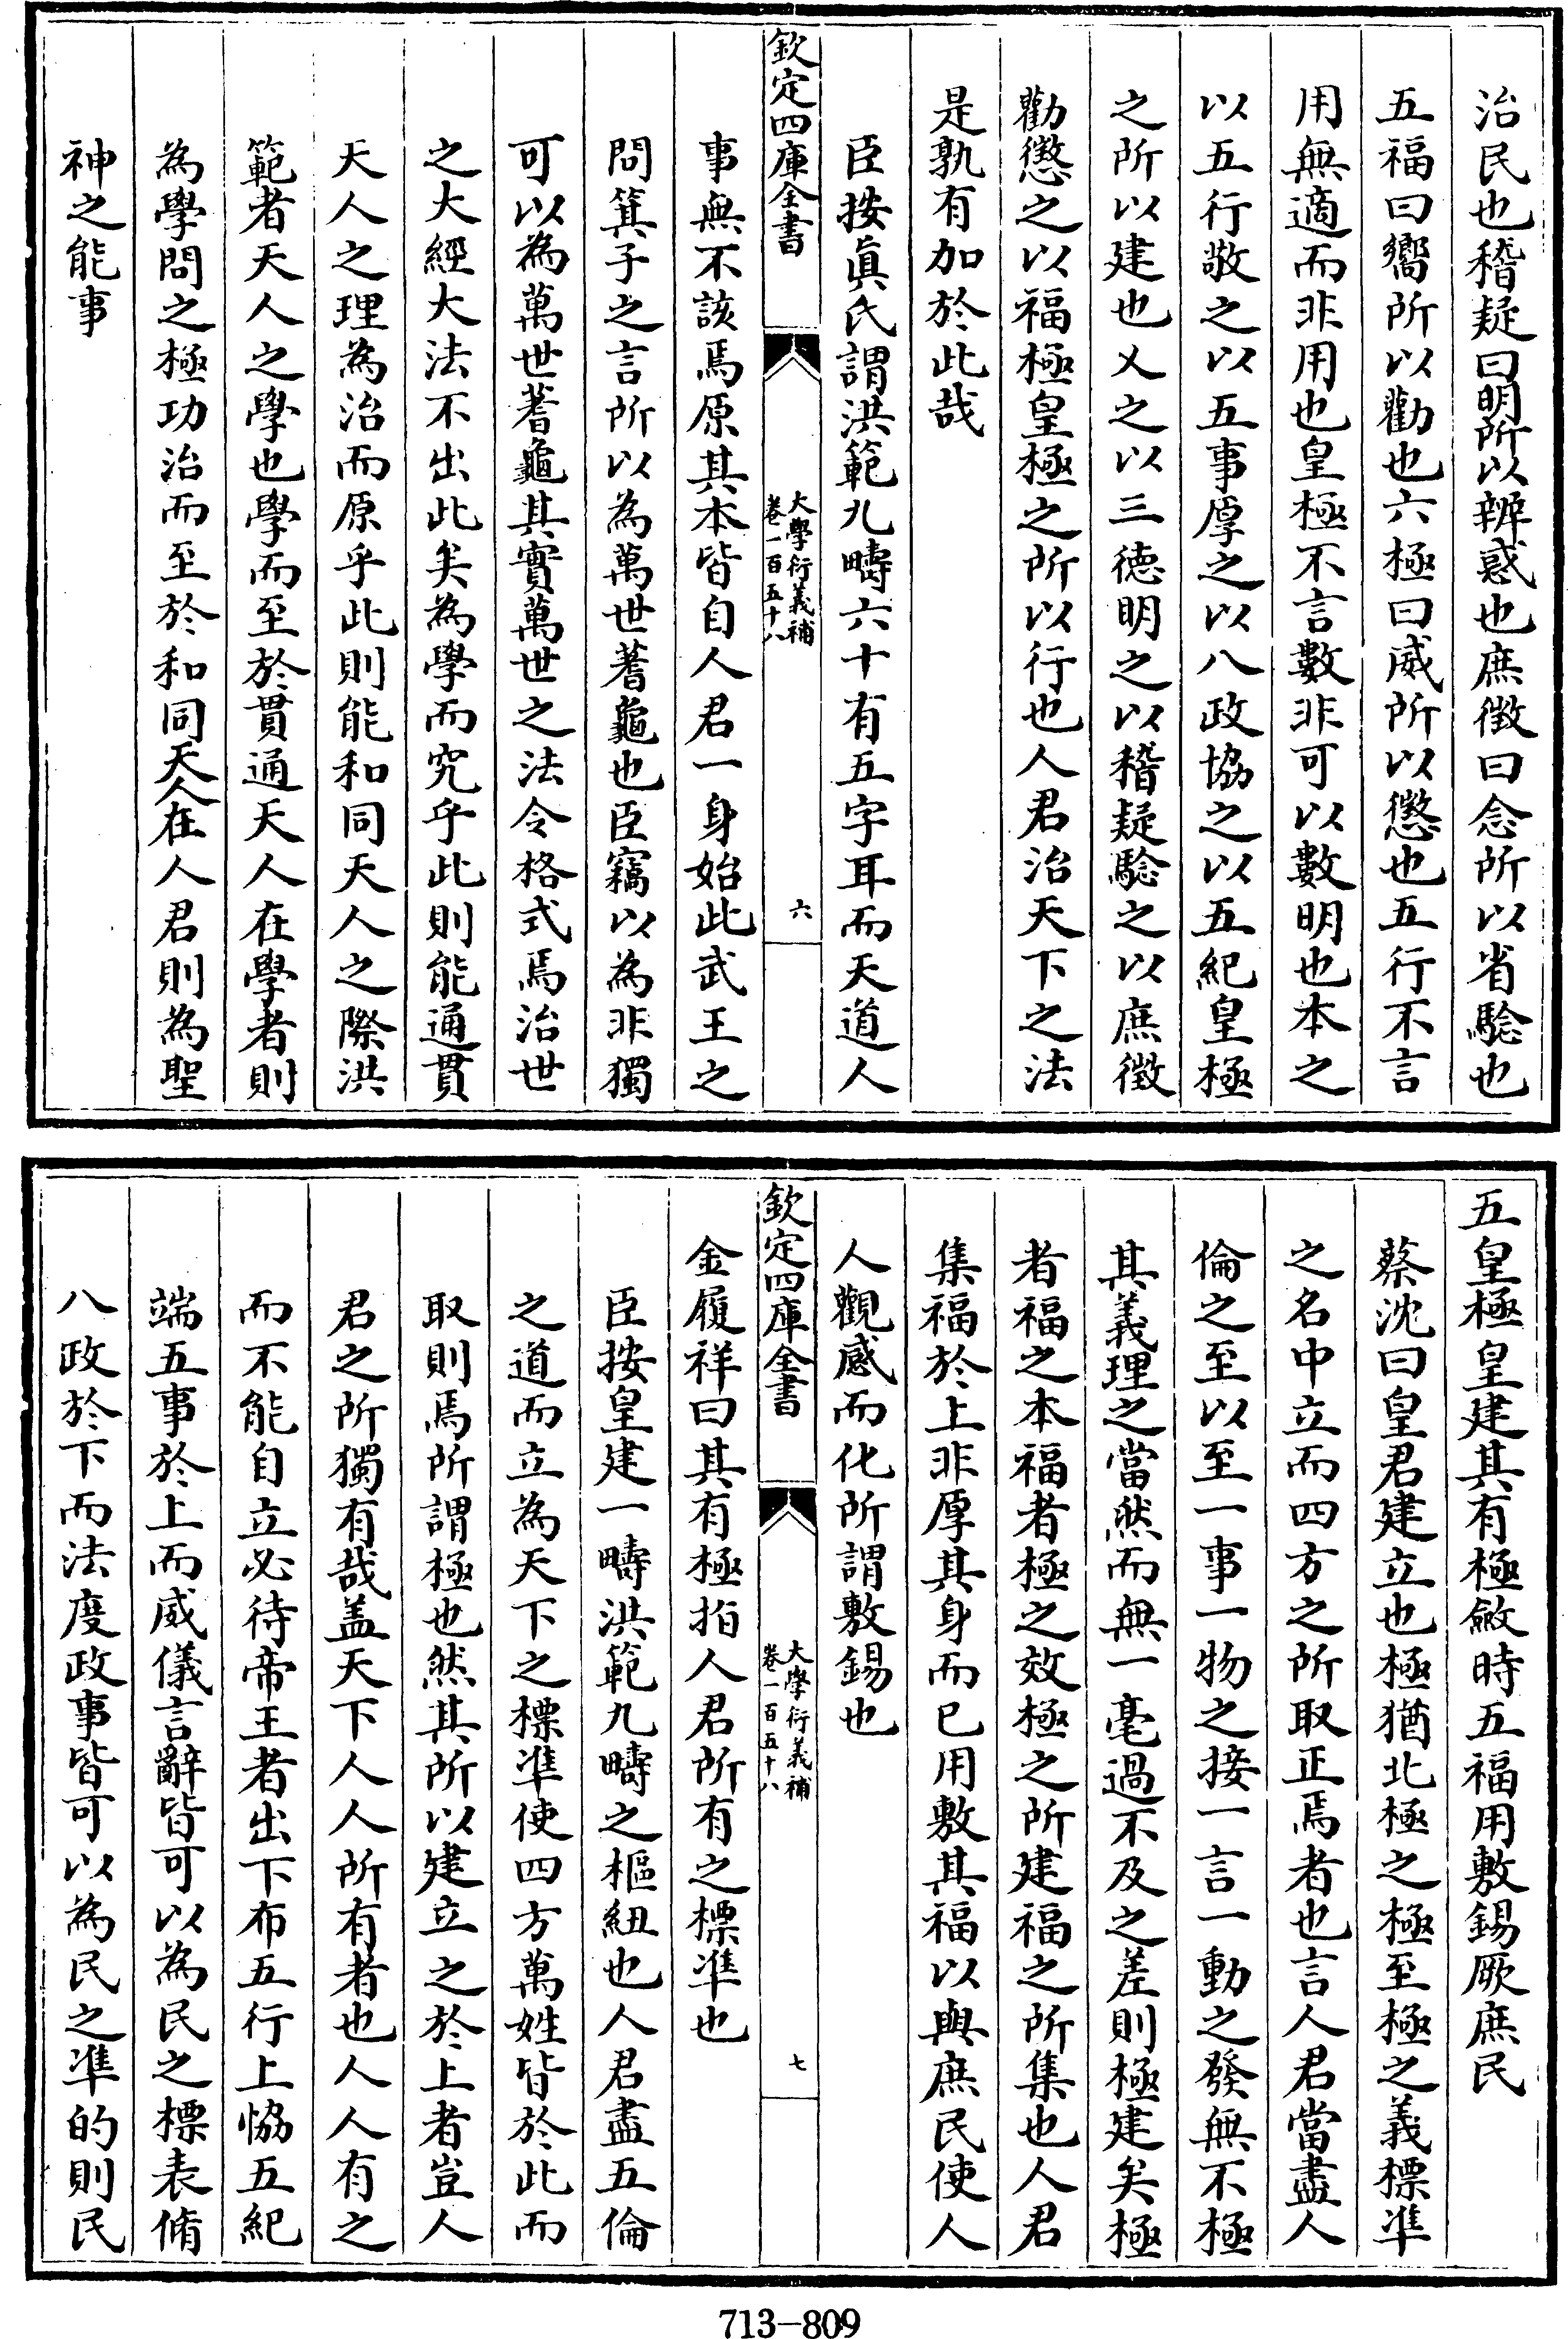 治民也稽疑曰明所以辨惑也庶徴曰念所以省騐也
五福曰嚮所以勸也六極曰威所以懲也五行不言
用無適而非用也皇極不言數非可以數明也本之
以五行敬之以五事厚之以八政協之以五紀皇極
之所以建也乂之以三德明之以稽疑騐之以庶徴
勸懲之以福極皇極之所以行也人君治天下之法
是孰有加於此哉
臣按真氏謂洪範九疇六十有五字耳而天道人
欽定四庫全書
大學衍義補
卷一百五十八
六
事無不該焉原其本皆自人君一身始此武王之
問箕子之言所以為萬世蓍龜也臣竊以為非獨
可以為萬世蓍龜其實萬世之法令格式焉治世
之大經大法不出此矣為學而究乎此則能通貫
天人之理為治而原乎此則能和同天人之際洪
範者天人之學也學而至於貫通天人在學者則
為學問之極功治而至於和同天人在人君則為聖
神之能事
五皇極皇建其有極斂時五福用敷錫厥庶民
蔡沈曰皇君建立也極猶北極之極至極之義標凖
之名中立而四方之所取正焉者也言人君當盡人
倫之至以至一事一物之接一言一動之發無不極
其義理之當然而無一毫過不及之差則極建矣極
者福之本福者極之效極之所建福之所集也人君
集福於上非厚其身而已用敷其福以與庶民使人
人觀感而化所謂敷錫也
欽定四庫全書
大學衍義補
卷一百五十八
七
金履祥曰其有極指人君所有之標凖也
臣按皇建一疇洪範九疇之樞紐也人君盡五倫
之道而立為天下之標凖使四方萬姓皆於此而
取則焉所謂極也然其所以建立之於上者豈人
君之所獨有哉盖天下人人所有者也人人有之
而不能自立必待帝王者出下布五行上恊五紀
端五事於上而威儀言辭皆可以為民之標表脩
八政於下而法度政事皆可以為民之凖的則民
713-809